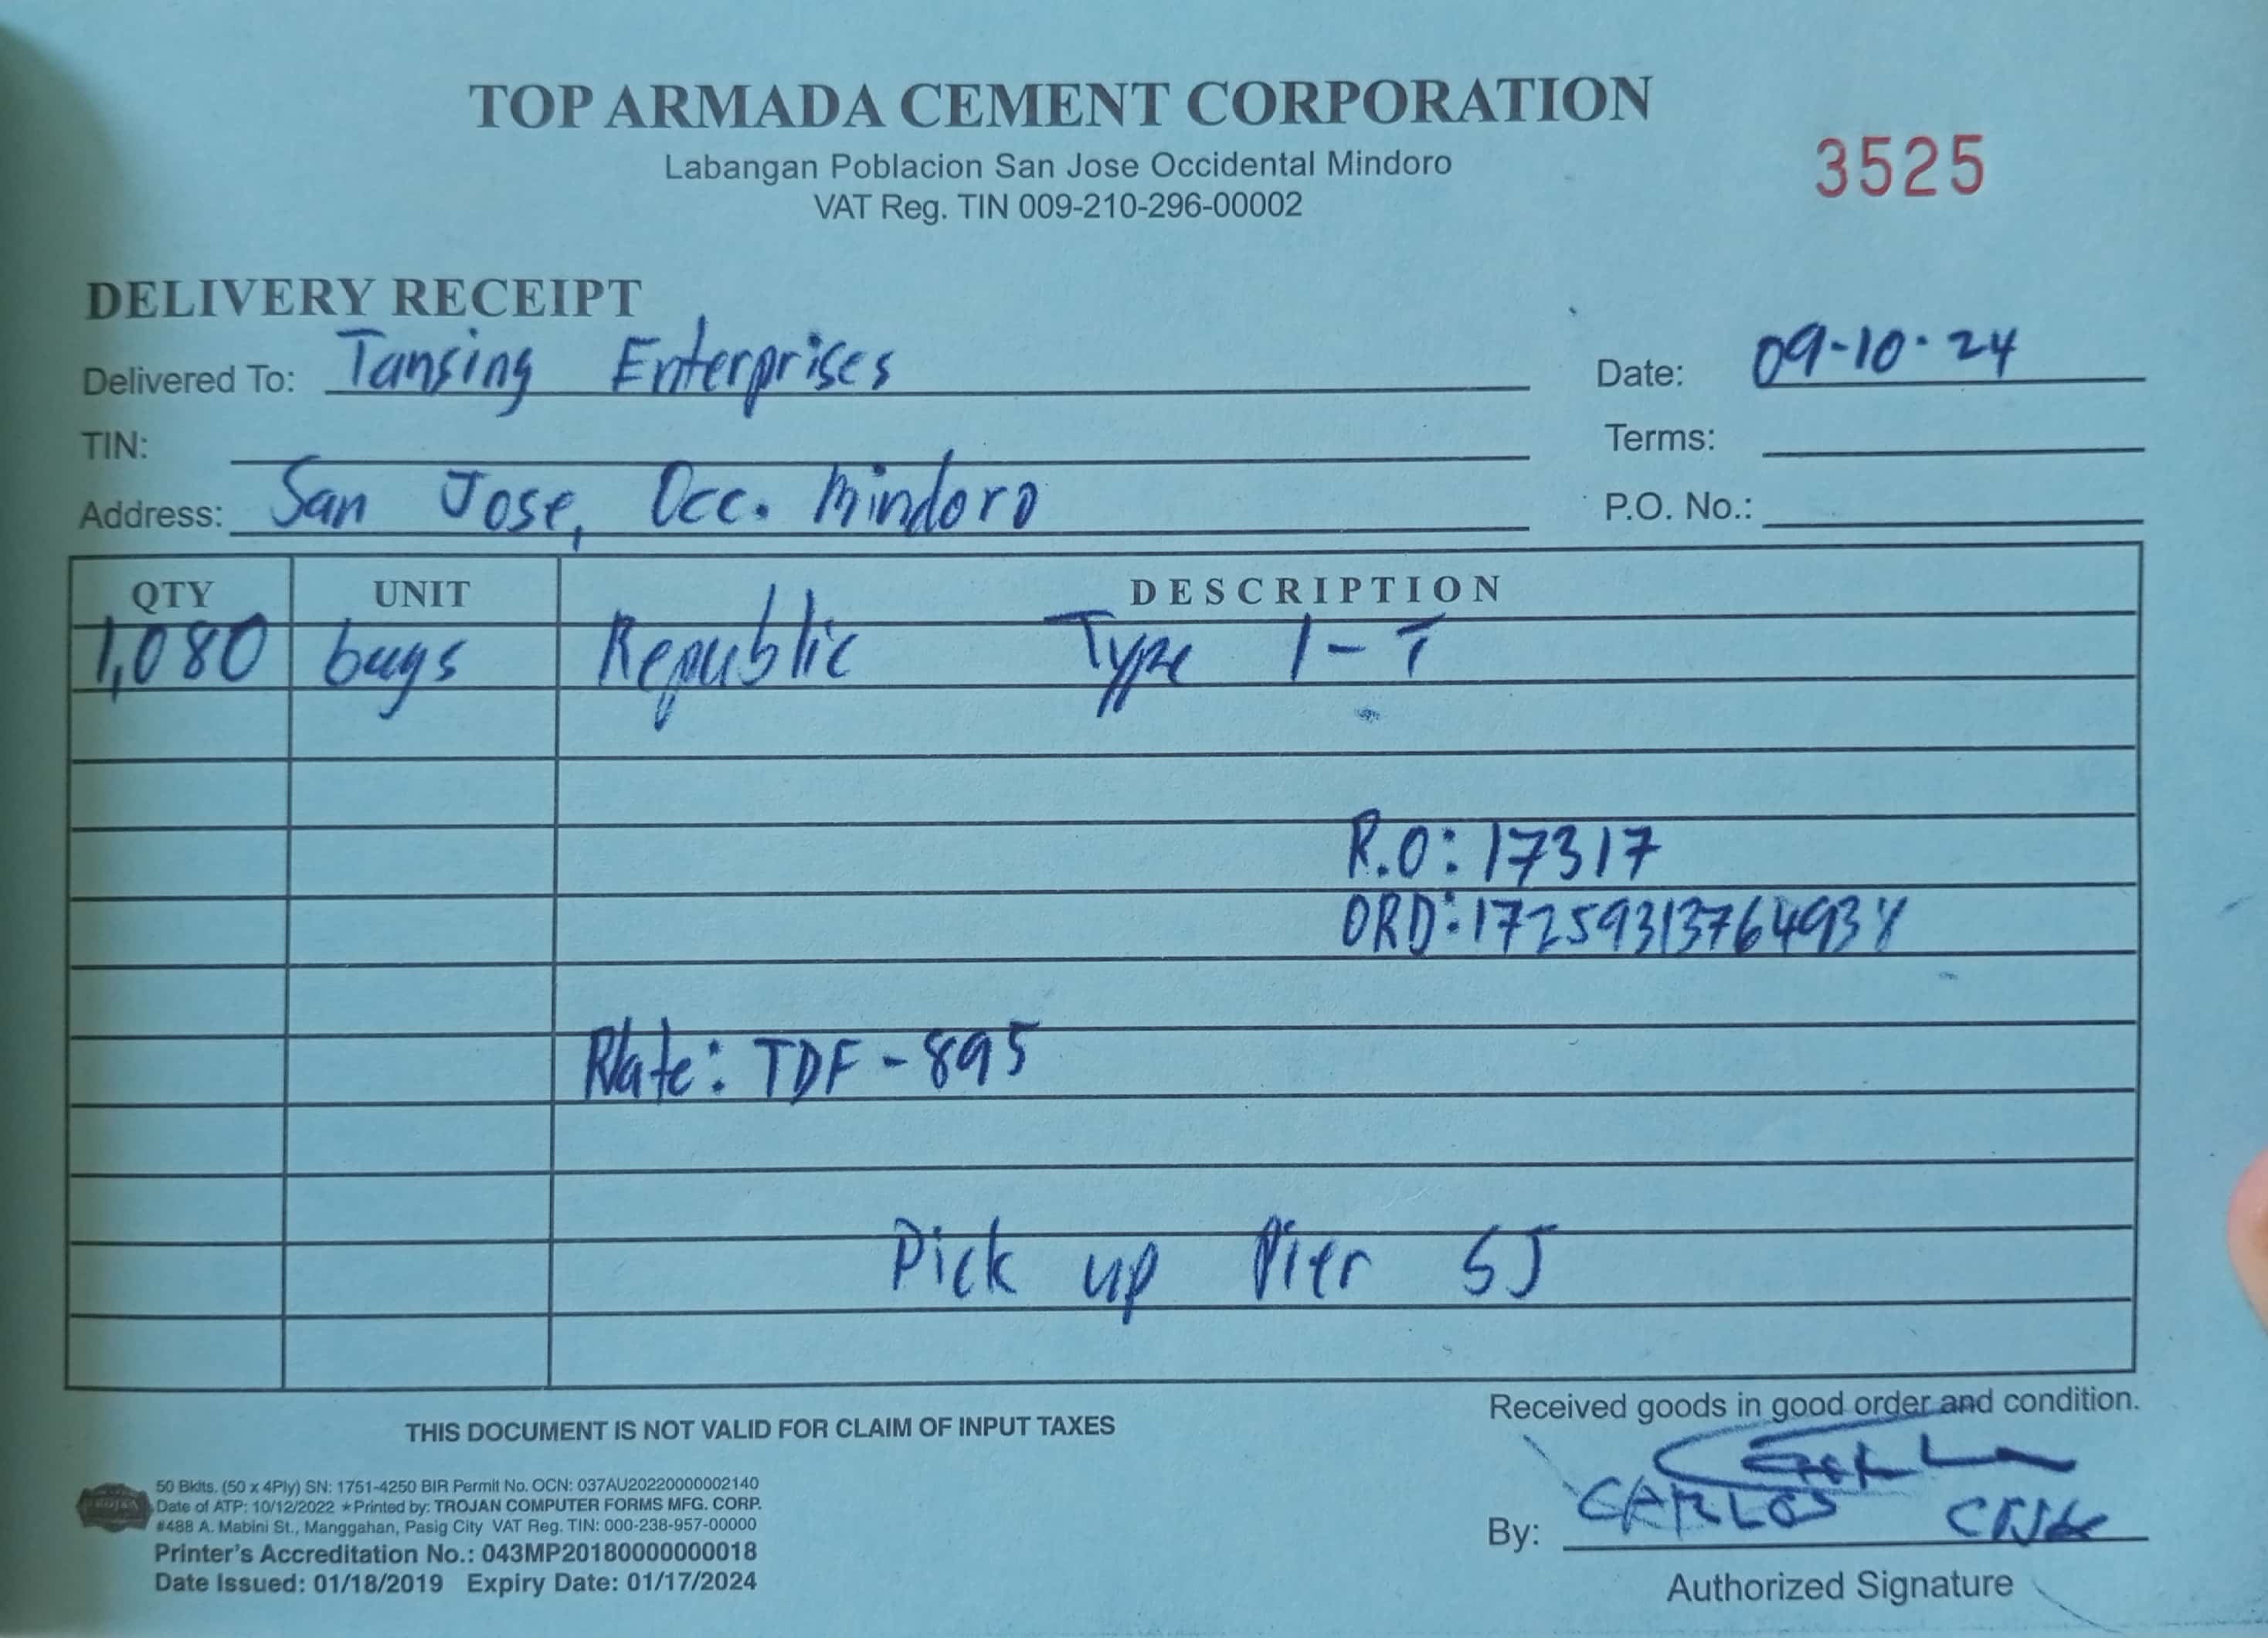 TOP ARMADA CEMENT CORPORATION
Labangan Poblacion San Jose Occidental Mindoro
VAT Reg. TIN 009-210-296-00002
3525
DELIVERY RECEIPT
Delivered To: Tansing Enterprises
Date: 09-10-24
TIN:
Terms:
Address: San Jose, Occ. Mindoro
P.O. No.:
QTY UNIT DESCRIPTION
1,080 bags Republic Type 1-T
R.O: 17317
ORD: 17259313764938
Plate: TDF-895
Pick up Pier SJ
Received goods in good order and condition.
THIS DOCUMENT IS NOT VALID FOR CLAIM OF INPUT TAXES
50 Bklts. (50 x 4Ply) SN: 1751-4250 BIR Permit No. OCN: 037AU20220000002140
Date of ATP: 10/12/2022 ★Printed by: TROJAN COMPUTER FORMS MFG. CORP.
#488 A. Mabini St., Manggahan, Pasig City VAT Reg. TIN: 000-238-957-00000
Printer's Accreditation No.: 043MP20180000000018
Date Issued: 01/18/2019 Expiry Date: 01/17/2024
By: CARLOS
Authorized Signature